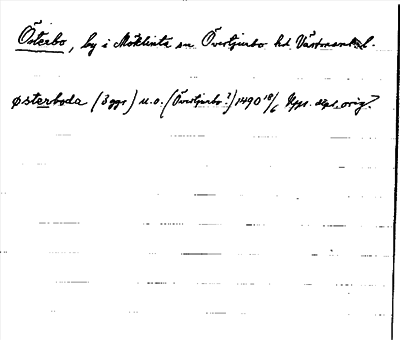 Österbo, by i Möklinta sn. Övertjurbo hd. Västmanl. l.
østerboda (3 ggr) u.o. (Övertjurbo?) 1490 18/6 Upps. dkpt. orig?